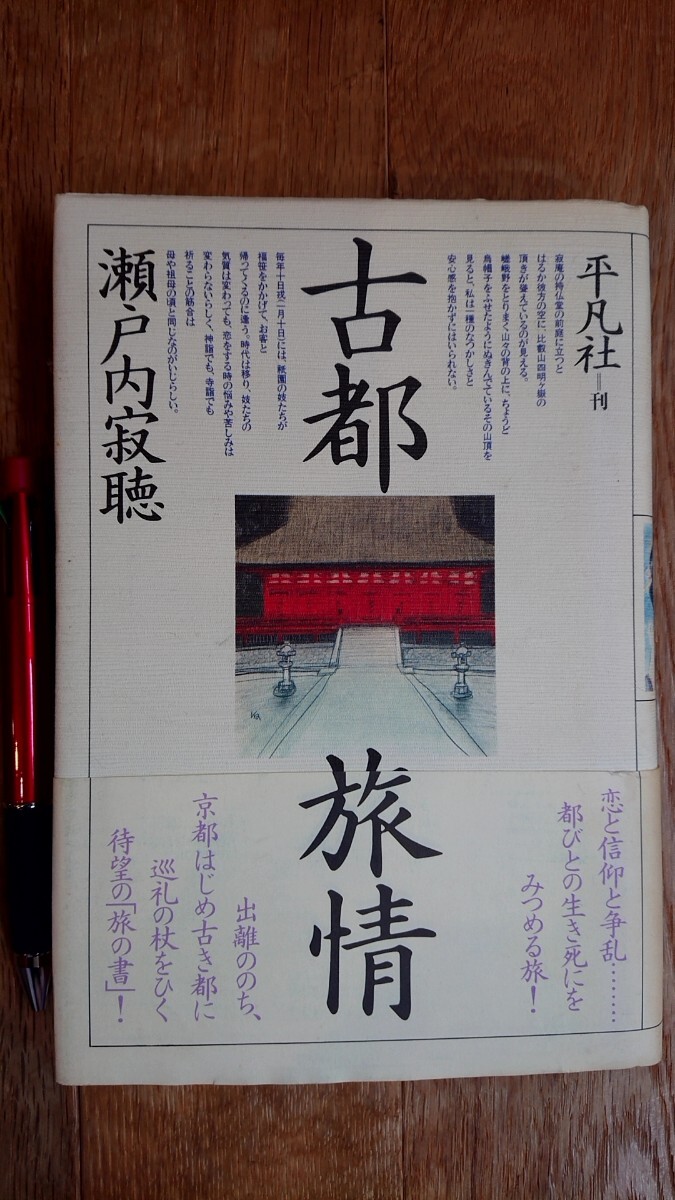 平凡社=刊
寂庵の持仏堂の前庭に立つと
はるか彼方の空に、比叡山四明ヶ嶽の
頂きが聳えているのが見える。
嵯峨野をとりまく山々の背の上に、ちょうど
烏帽子をふせたようにぬきんでているその山頂を
見ると、私は一種のなつかしさと
安心感を抱かずにはいられない。
古都
旅情
毎年十日戎(一月十日)には、祇園の妓たちが
福笹をかかげて、お客と
帰ってくるのに逢う。時代は移り、妓たちの
気質は変わっても、恋をする時の悩みや苦しみは
変わらないらしく、神詣でも、寺詣でも
祈ることの筋合は
母や祖母の頃と同じなのがいじらしい。
瀬戸内寂聴
恋と信仰と争乱………
都びとの生き死にを
みつめる旅!
出離ののち、
京都はじめ古き都に
巡礼の杖をひく
待望の「旅の書」!